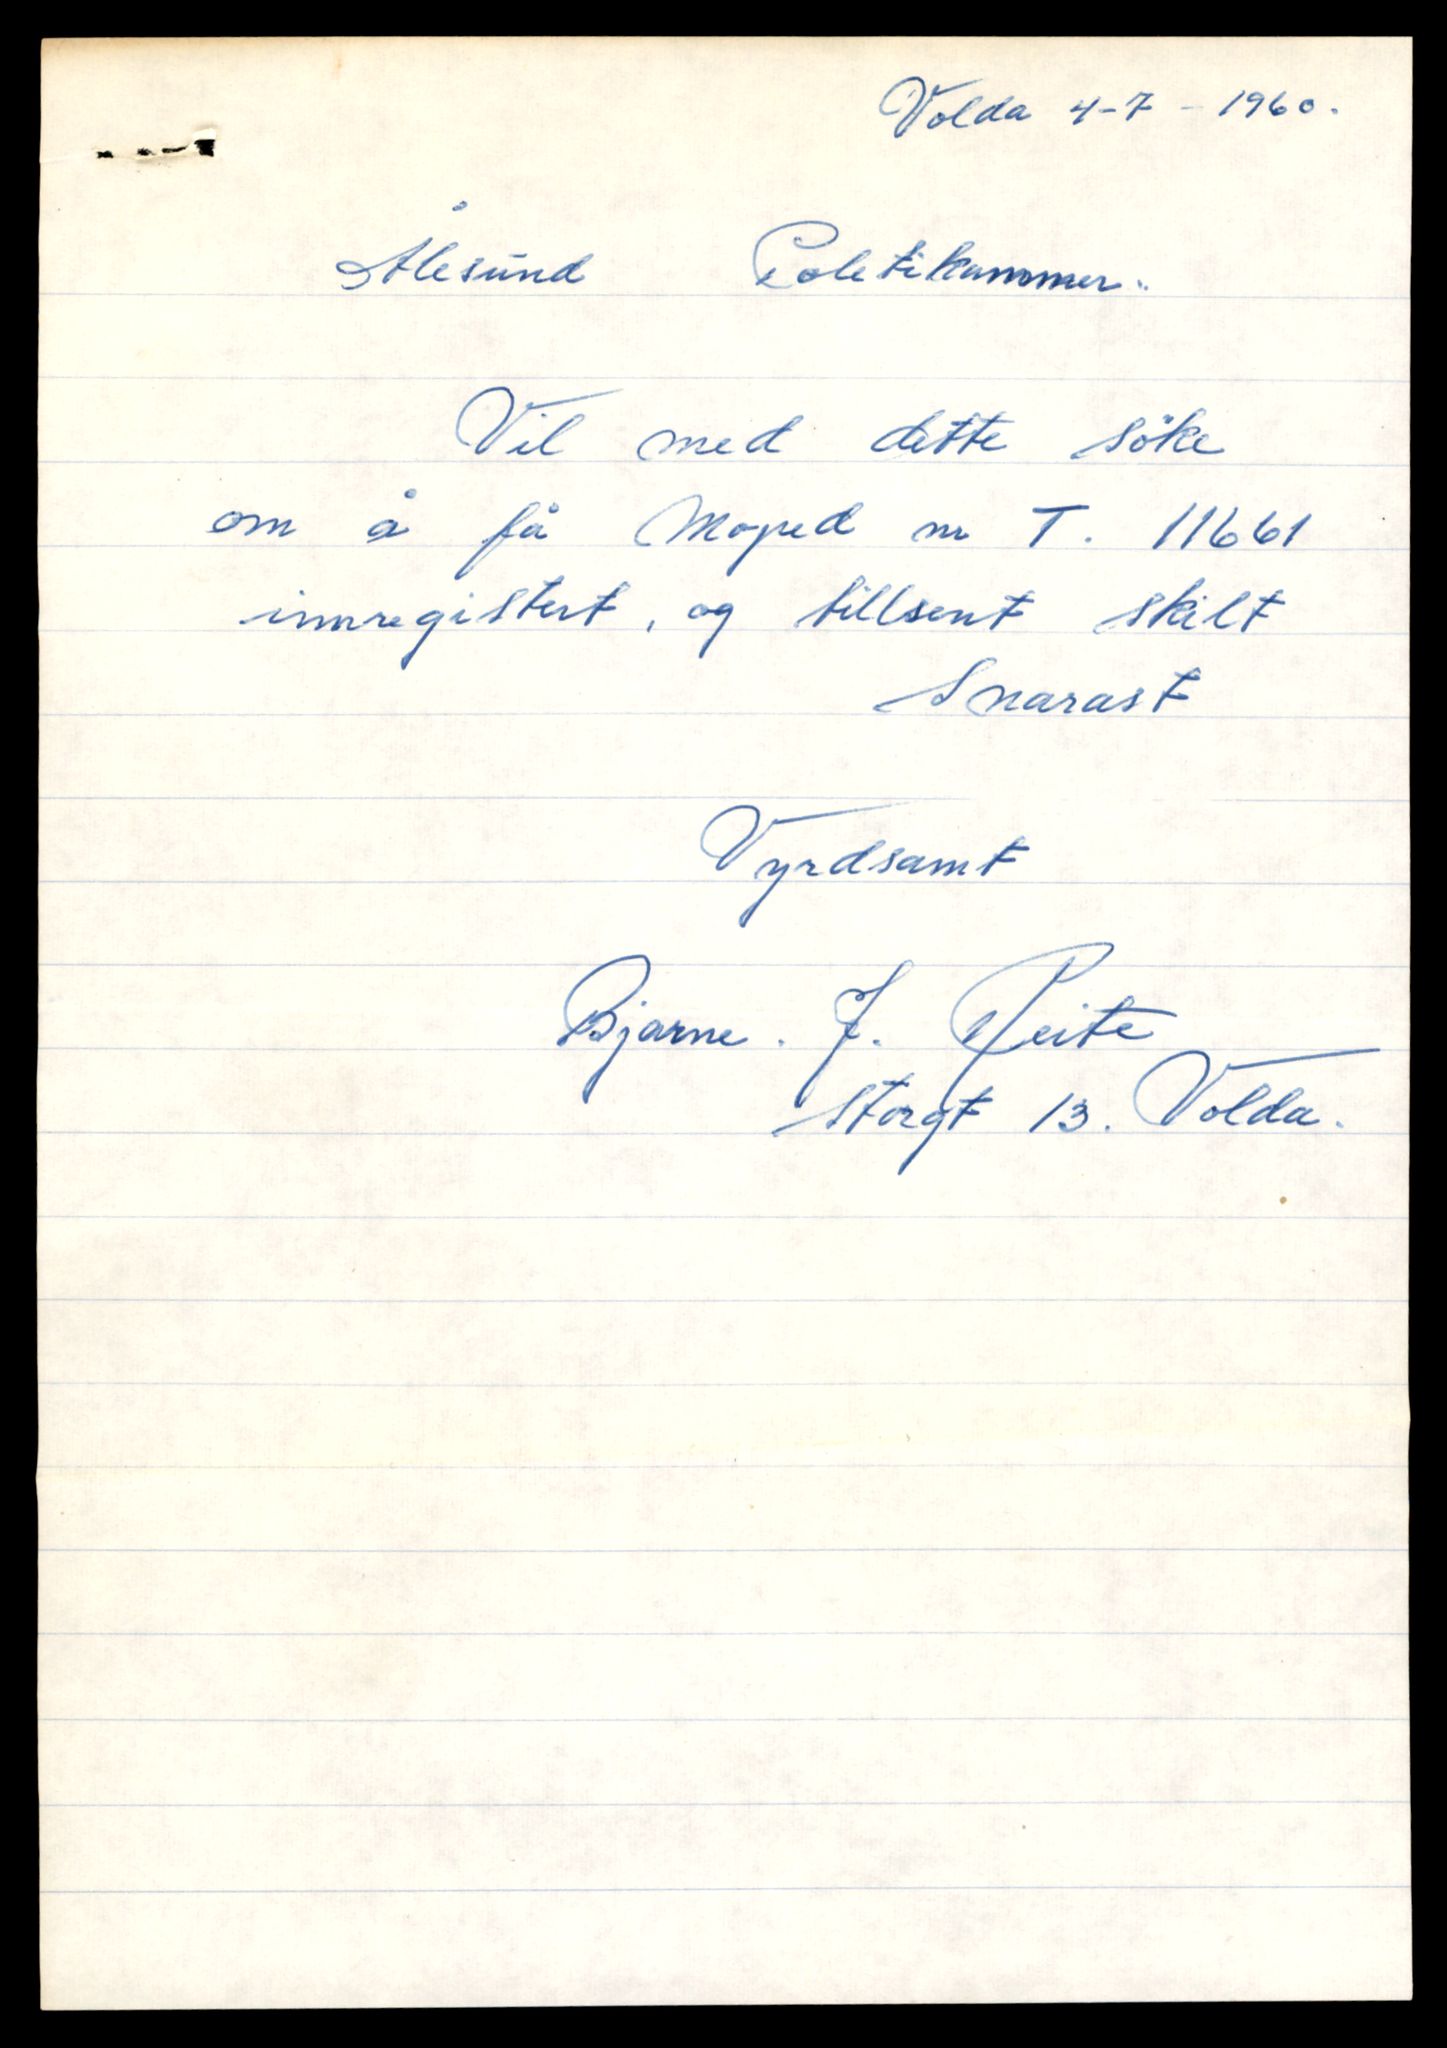 Volda 4-7-1960.
Ålesund Poletikammer.
Vil med dette söke
om å få Moped nr T. 11661
innregistert, og tillsent skilt
Snarast
Vyrdsamt
Bjarne. J. Reite
Storgt 13. Volda.